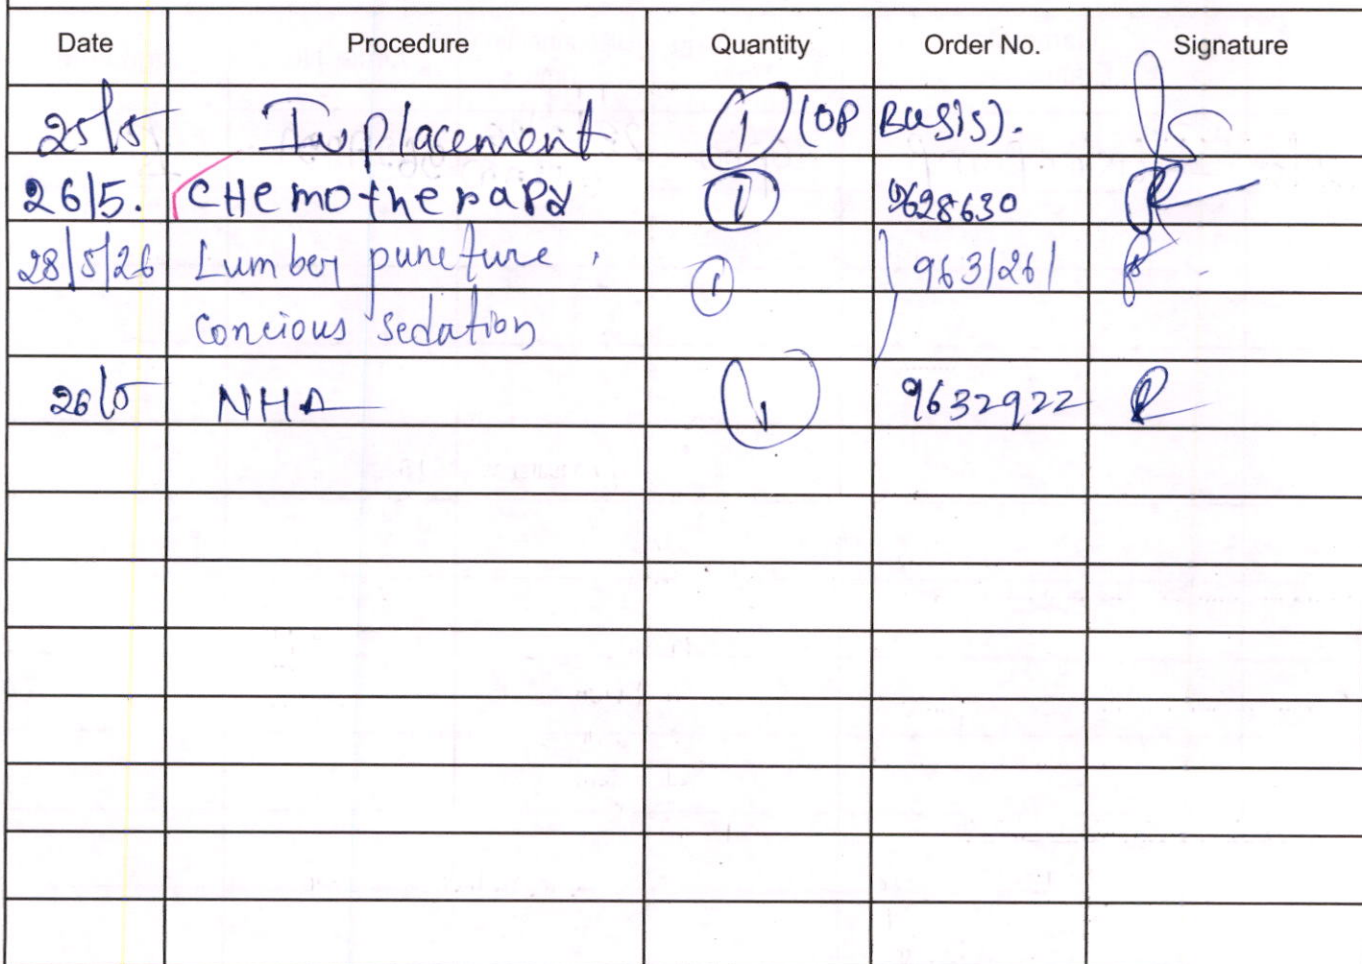 Date Procedure Quantity Order No. Signature
25/5 Ivplacement 1 (OP Basis).
26/5. CHemotherapy 1 9628630
28/5/26 Lumber puncture, 1 9631261
concious sedation
26/5 NHA 1 9632922